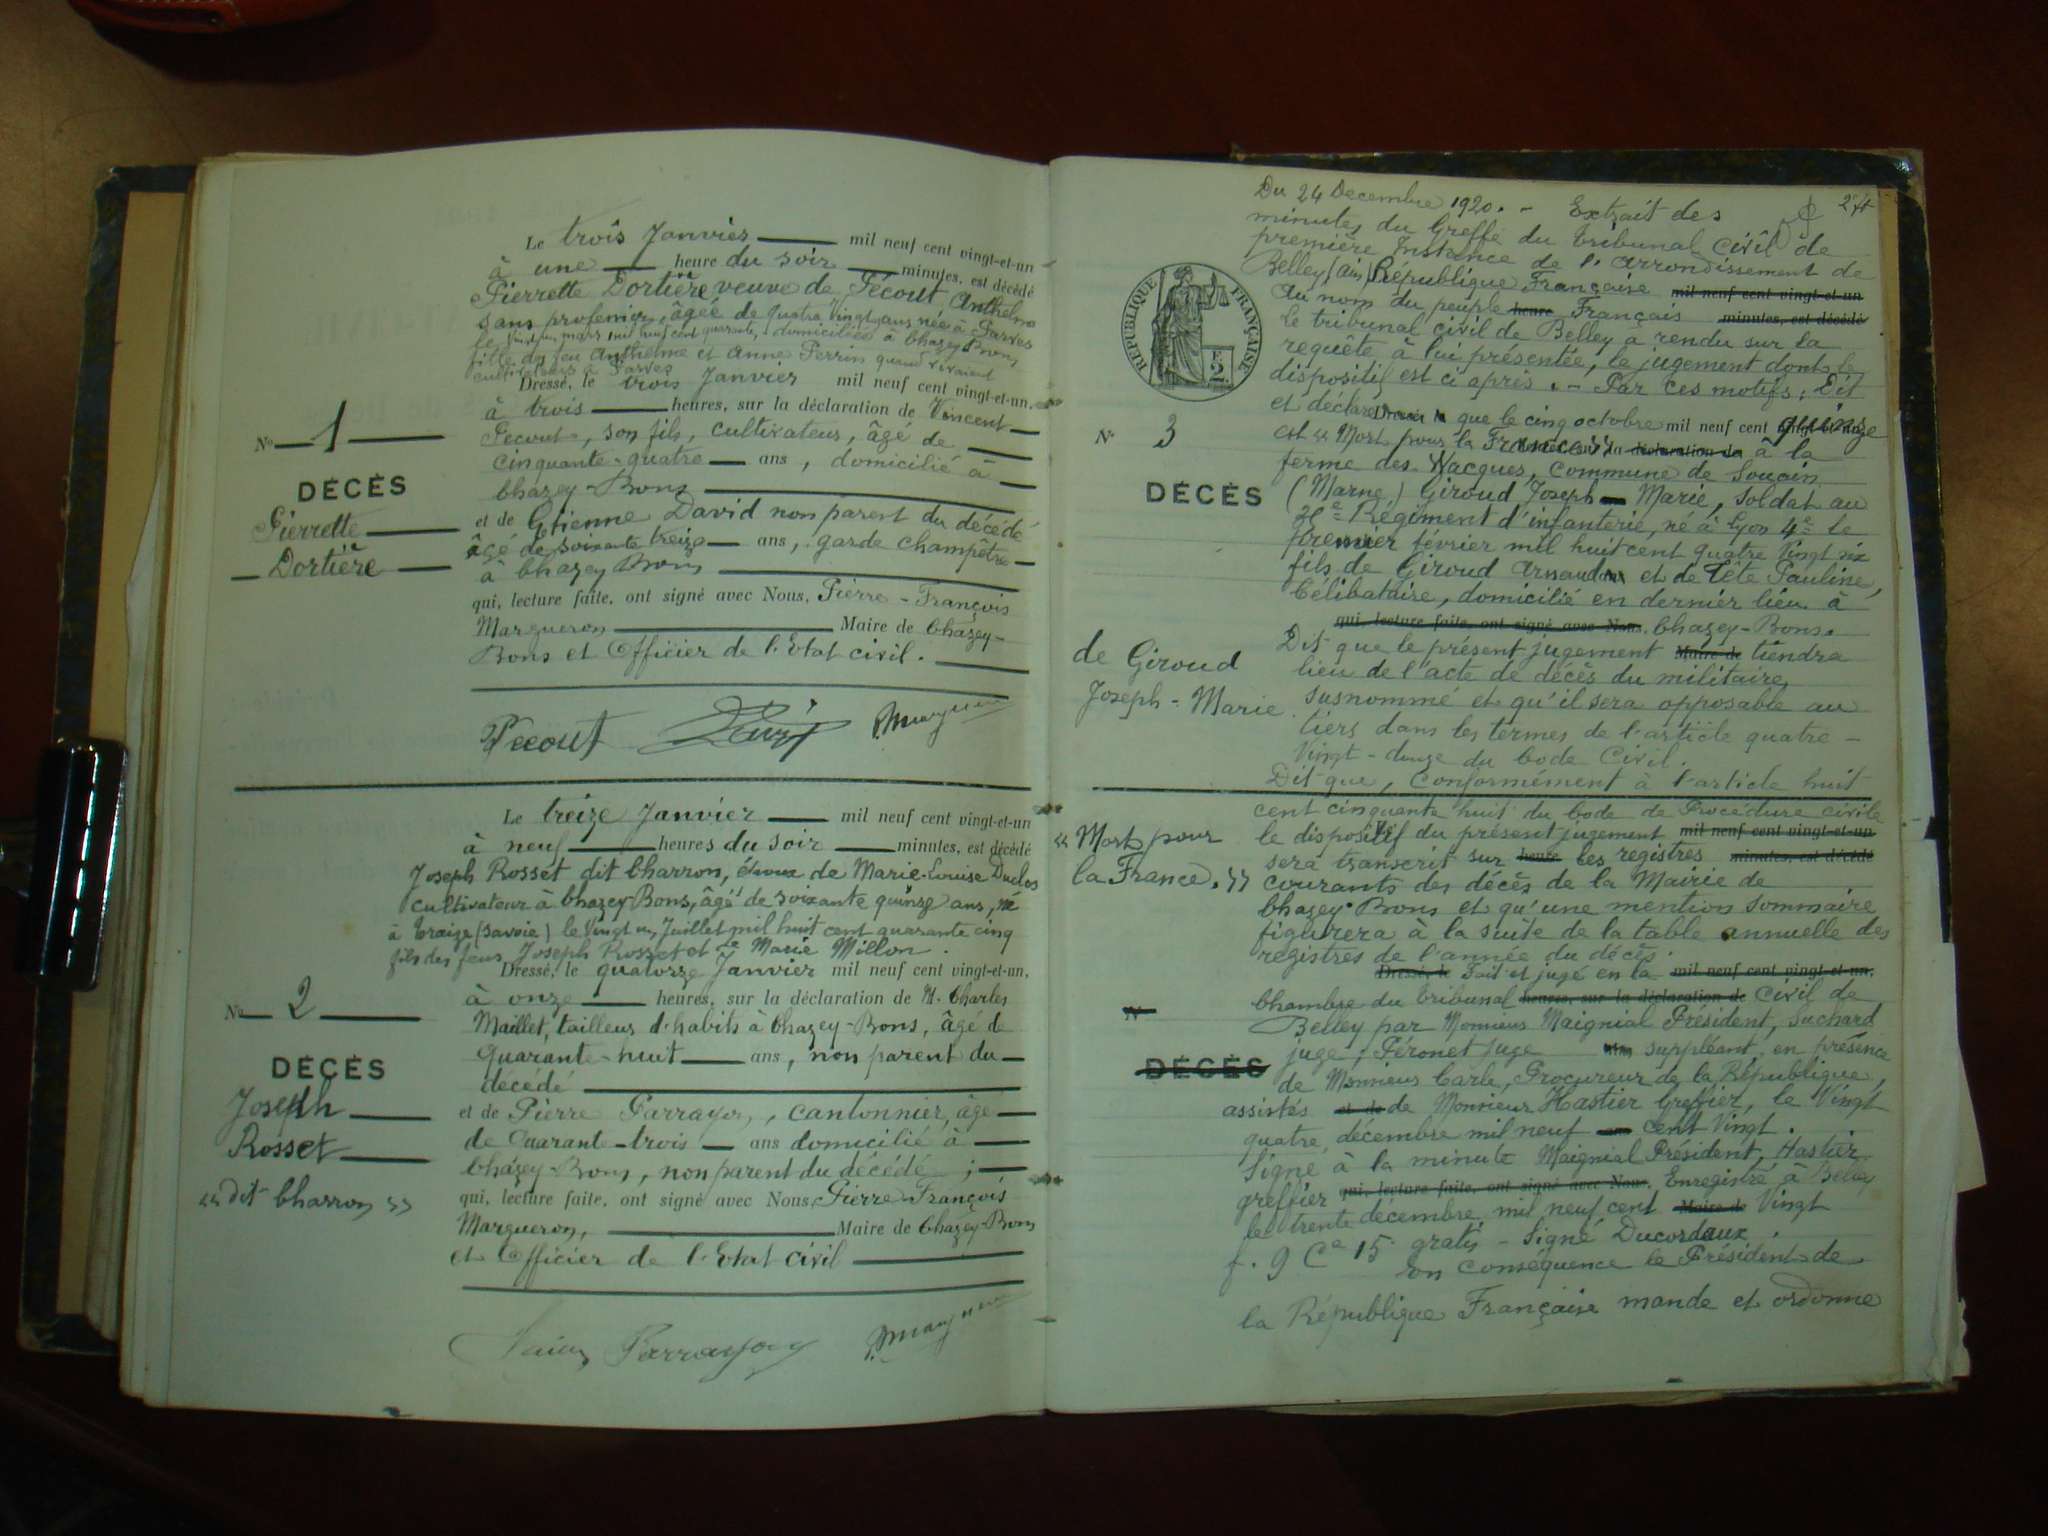 Le trois Janvier mil neuf cent vingt-et-un
à une heure du soir minutes, est décédé
Pierrette Dortière veuve de Pécout Anthelme
sans profession, âgée de quatre vingt ans née à Parves
le vingt un mars mil huit cent quarante, domiciliée à Chazey Bons
fille de feu Anthelme et Anne Perrin quand vivaient
cultivateurs à Parves
Dressé, le trois Janvier mil neuf cent vingt-et-un,
à trois heures, sur la déclaration de Vincent
Pecout, son fils, cultivateur, âgé de
cinquante-quatre ans, domicilié à
Chazey-Bons
et de Etienne David non parent du décédé
âgé de soixante treize ans, garde champêtre
à Chazey Bons
qui, lecture faite, ont signé avec Nous, Pierre-François
Margueron Maire de Chazey-
Bons et Officier de l'Etat civil.
No 1
DÉCÈS
Pierrette
Dortière
Pecout David P. Margueron
Le treize Janvier mil neuf cent vingt-et-un
à neuf heures du soir minutes, est décédé
Joseph Rosset dit Charron, époux de Marie-Louise Duclos
cultivateur à Chazey-Bons, âgé de soixante quinze ans, né
à Traize (Savoie) le vingt un Juillet mil huit cent quarante cinq
fils des feus Joseph Rosset et de Marie Millon.
Dressé, le quatorze Janvier mil neuf cent vingt-et-un,
à onze heures, sur la déclaration de M. Charles
Maillet, tailleur d'habits à Chazey-Bons, âgé de
quarante-huit ans, non parent du
décédé
et de Pierre Parrayon, cantonnier, âgé
de Quarante-trois ans domicilié à
Chazey-Bons, non parent du décédé ;
qui, lecture faite, ont signé avec Nous, Pierre François
Margueron, Maire de Chazey-Bons
et Officier de l'Etat civil
No 2
DÉCÈS
Joseph
Rosset
"dit Charron"
Parrayon P. Margueron
Du 24 Decembre 1920. - Extrait des
minutes du Greffe du Tribunal Civil de
première Instance de l'arrondissement de
Belley (Ain) République Française mil neuf cent vingt-et-un
Au nom du peuple heure Français minutes, est décédé
le tribunal civil de Belley a rendu sur la
requête à lui présentée, le jugement dont le
dispositif est ci après. - Par ces motifs; Dit
et déclare Dressé, le que le cinq octobre mil neuf cent quinze
est "Mort pour la France" la déclaration de à la
ferme des Wacques, commune de Souain
(Marne) Giroud Joseph Marie, soldat au
Régiment d'infanterie, né à Lyon 4e le
premier février mil huit cent quatre vingt six
fils de Giroud Arnaud et de Tête Pauline,
Célibataire, domicilié en dernier lieu à
qui, lecture faite, ont signé avec Nous, Chazey-Bons.
Dit que le présent jugement Maire de tiendra
lieu de l'acte de décès du militaire
susnommé et qu'il sera opposable au
tiers dans les termes de l'article quatre-
Vingt-douze du Code Civil.
Dit que, conformément à l'article huit
cent cinquante huit du Code de Procédure civile
le dispositif du présent jugement mil neuf cent vingt-et-un
sera transcrit sur heure les registres minutes, est décédé
courants des décès de la Mairie de
Chazey-Bons et qu'une mention sommaire
figurera à la suite de la table annuelle des
registres de l'année du décès.
Dressé, le Fait et jugé en la mil neuf cent vingt-et-un,
Chambre du Tribunal heures, sur la déclaration de Civil de
Belley par Monsieur Maignial Président, Suchard
juge, Péronet juge ans suppléant, en présence
de Monsieur Carle, Procureur de la République,
assistés et de de Monsieur Hastier Greffier, le Vingt
quatre décembre mil neuf cent Vingt.
Signé à la minute Maignial Président, Hastier
greffier qui, lecture faite, ont signé avec Nous, Enregistré à Belley
le trente decembre mil neuf cent Maire de Vingt
f. 9 Ce 15 gratis - Signé Ducordaux.
En conséquence le Président de
la République Française mande et ordonne
RÉPUBLIQUE FRANÇAISE
F. 2
No 3
DÉCÈS
de Giroud
Joseph-Marie
"Mort pour
la France."
No
DÉCÈS